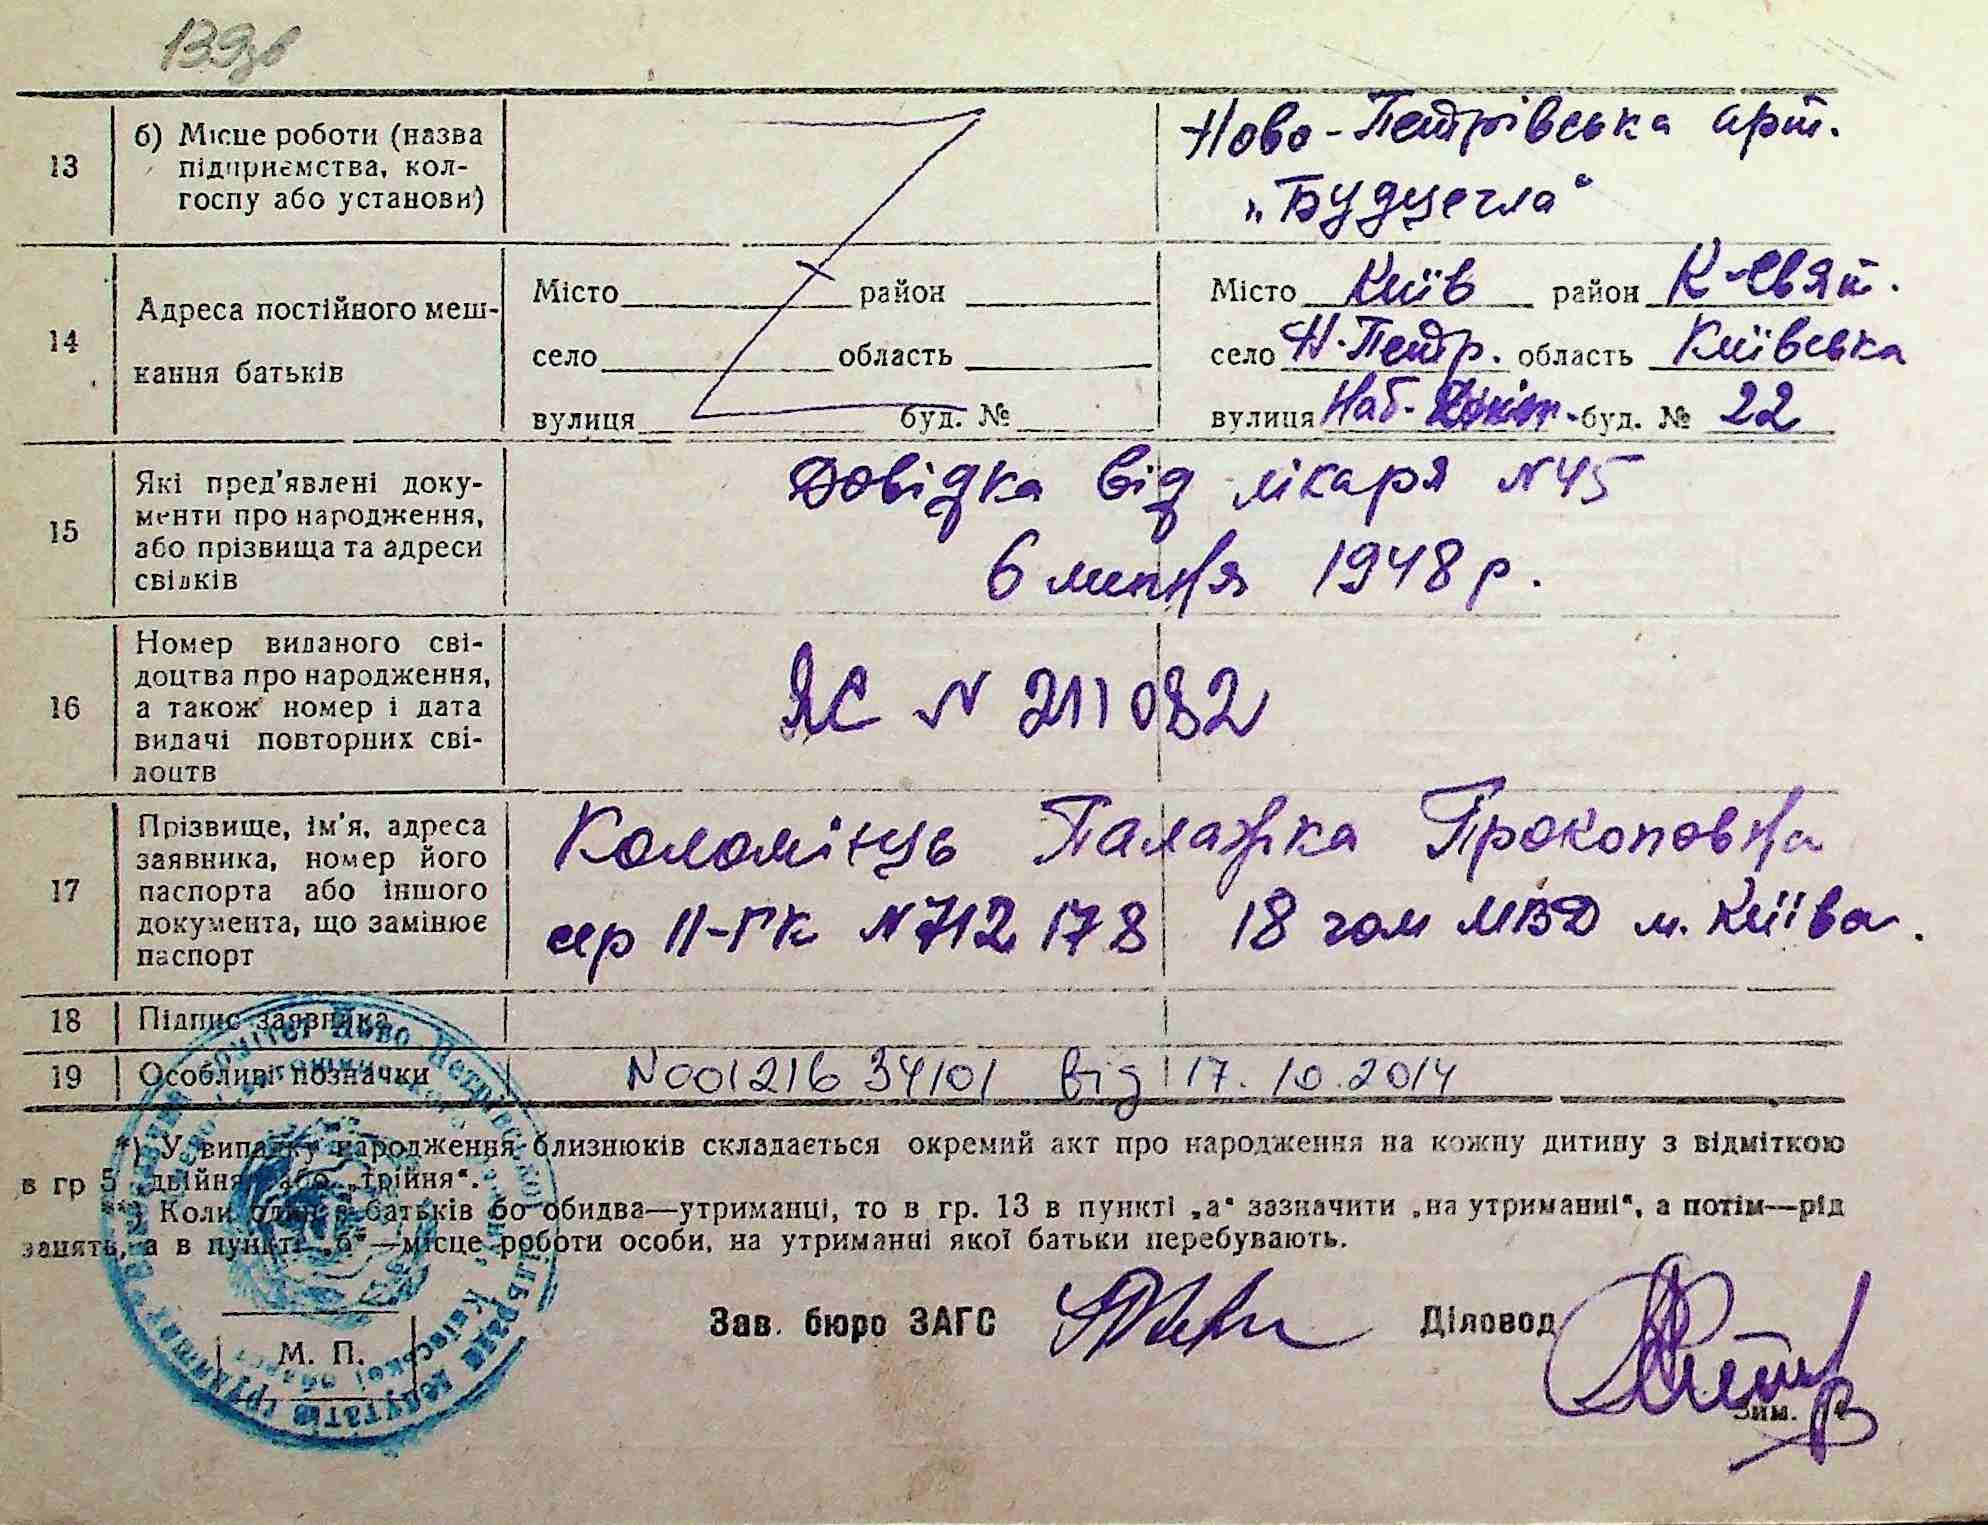 139зв
13
б) Місце роботи (назва
підприємства, кол-
госпу або установи)
Ново-Петрівська арт.
„Будцегла"
14
Адреса постійного меш-
кання батьків
Місто район
село область
вулиця буд. №
Місто Київ район К-Свят.
село Н.-Петр. область Київська
вулиця Наб- буд. № 22
15
Які пред'явлені доку-
менти про народження,
або прізвища та адреси
свідків
Довідка від лікаря N45
6 липня 1948 р.
16
Номер виданого сві-
доцтва про народження,
а також номер і дата
видачі повторних сві-
доцтв
ЯС N 211082
17
Прізвище, ім'я, адреса
заявника, номер його
паспорта або іншого
документа, що замінює
паспорт
Коломієць Палажка Прокоповна
сер II-ГК N712178 18 МВД м. Київа.
18
Підпис заявника
19
Особливі позначки
N00121634101 від 17.10.2014
*) У випадку народження близнюків складається окремий акт про народження на кожну дитину з відміткою
в гр 5 „двійня" або „трійня".
**) Коли один з батьків бо обидва—утриманці, то в гр. 13 в пункті „а" зазначити „на утриманні", а потім—рід
занять, а в пункті „б"—місце роботи особи, на утриманні якої батьки перебувають.
Зав. бюро ЗАГС
Діловод
М. П.